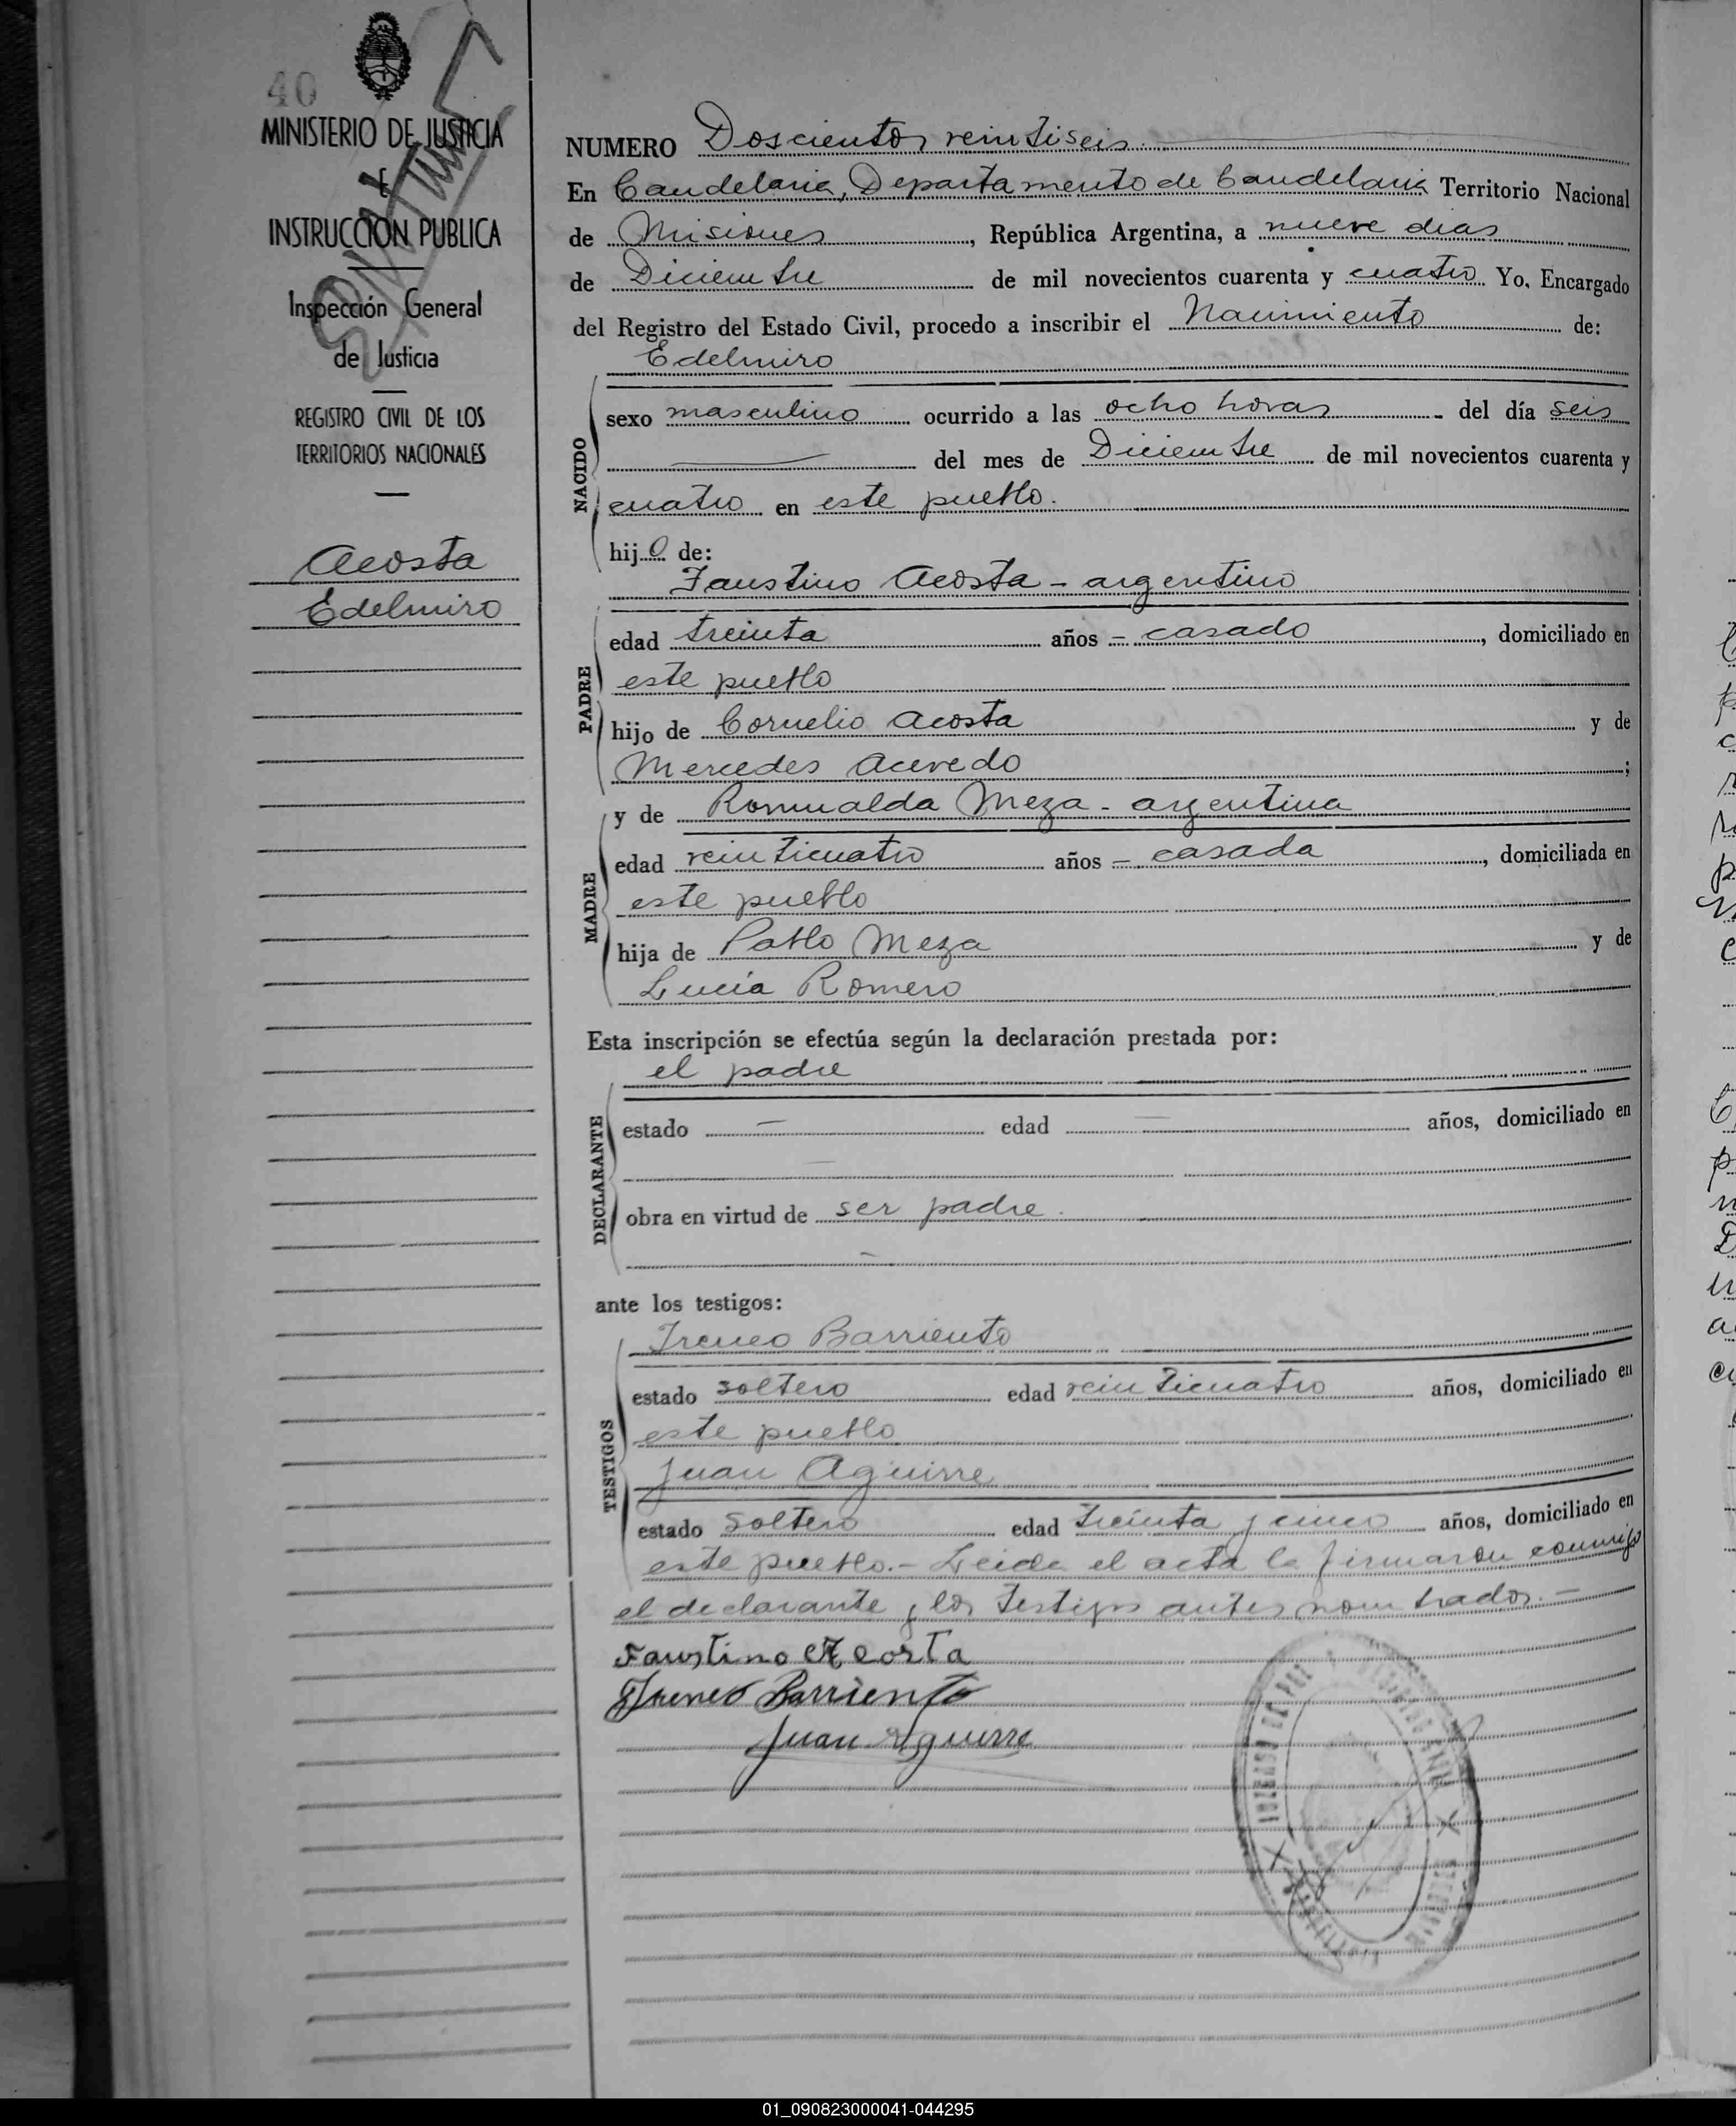 40
MINISTERIO DE JUSTICIA
E
INSTRUCCION PUBLICA
Inspección General
de Justicia
REGISTRO CIVIL DE LOS
TERRITORIOS NACIONALES
Acosta
Edelmiro
NUMERO Doscientos veintiseis.
En Candelaria, Departamento de Candelaria Territorio Nacional
de Misiones, República Argentina, a nueve dias
de Diciembre de mil novecientos cuarenta y cuatro Yo, Encargado
del Registro del Estado Civil, procedo a inscribir el Nacimiento de:
Edelmiro
NACIDO
sexo masculino ocurrido a las ocho horas del día seis
del mes de Diciembre de mil novecientos cuarenta y
cuatro en este pueblo.
hijo de:
Faustino Acosta - argentino
PADRE
edad treinta años - casado, domiciliado en
este pueblo
hijo de Cornelio Acosta y de
Mercedes Acevedo;
y de Romualda Meza - argentina
MADRE
edad veinticuatro años - casada, domiciliada en
este pueblo
hija de Pablo Meza y de
Lucía Romero
Esta inscripción se efectúa según la declaración prestada por:
el padre
DECLARANTE
estado — edad — años, domiciliado en
obra en virtud de ser padre.
ante los testigos:
Ireneo Barriento
TESTIGOS
estado soltero edad veinticuatro años, domiciliado en
este pueblo
Juan Aguirre
estado soltero edad treinta y cinco años, domiciliado en
este pueblo.- Leida el acta la firmaron conmigo
el declarante y los testigos antes nombrados.-
Faustino Acosta
Ireneo Barriento
Juan Aguirre
01_090823000041-044295